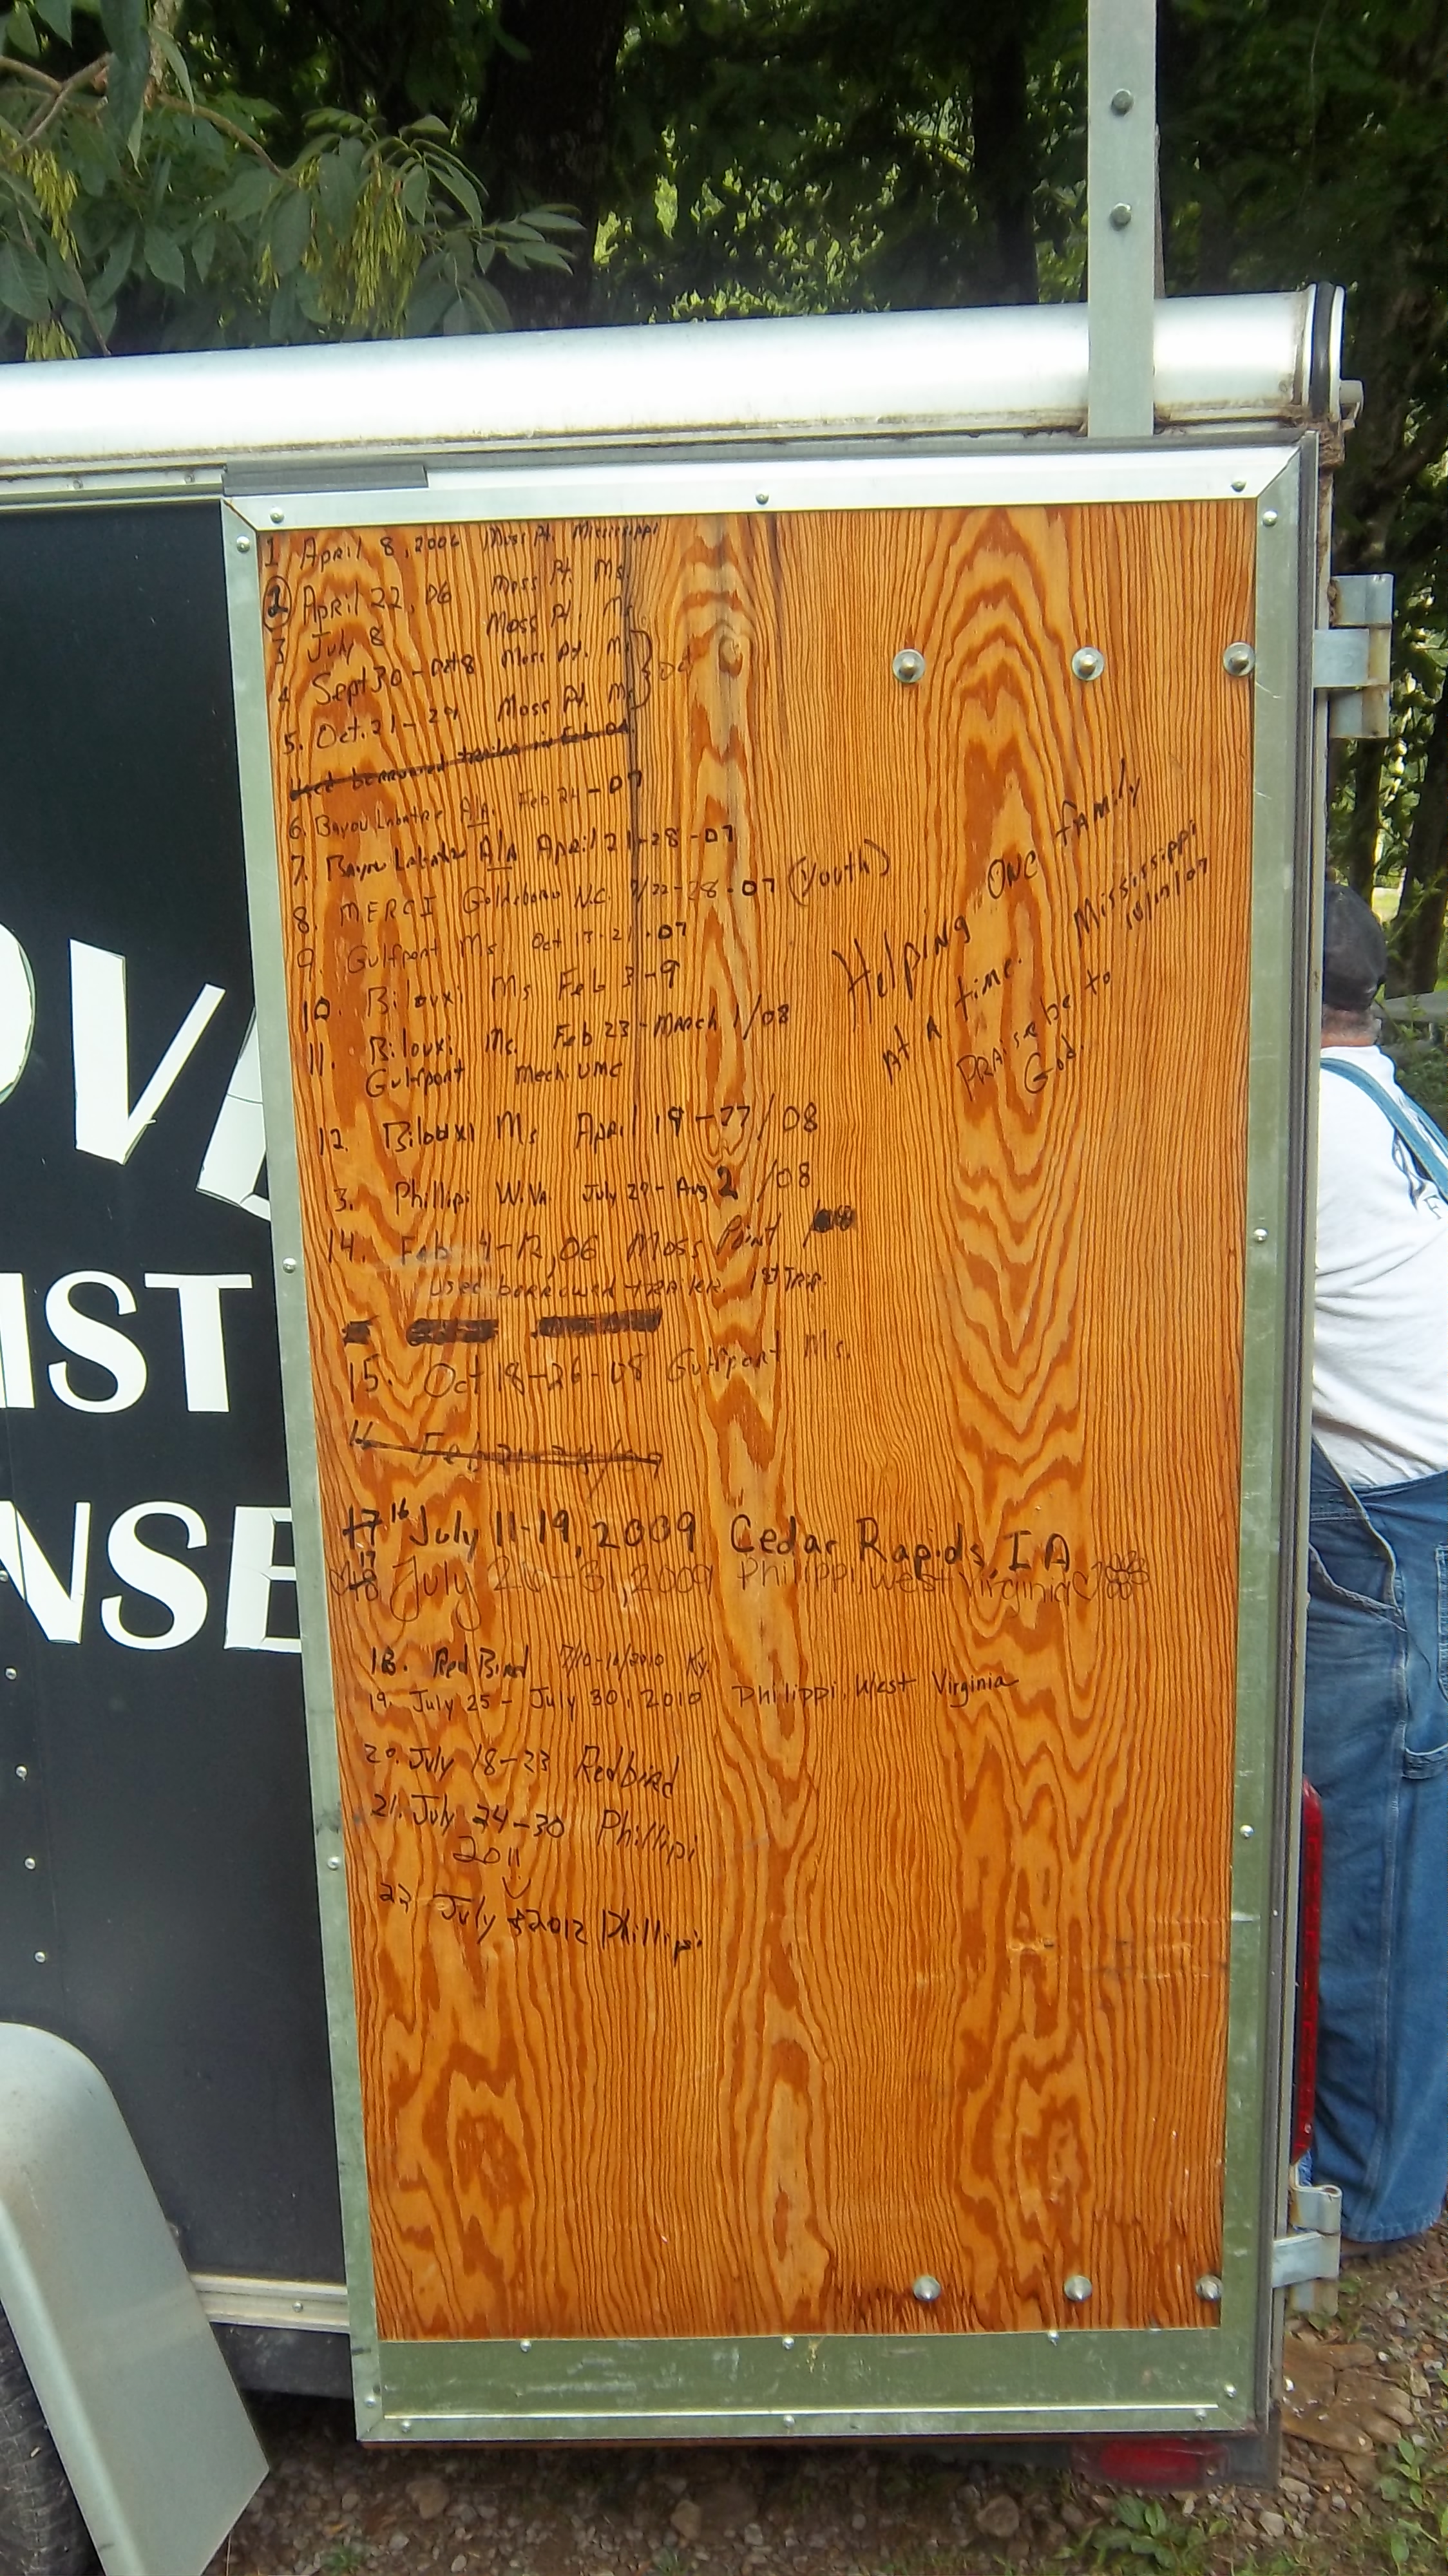 1 April 8, 2006 Moss Pt. Mississippi
2 April 22, 06 Moss Pt. Ms.
3 July 8 Moss Pt. Ms
4 Sept 30 - Oct 8 Moss Pt. Ms } 06
5. Oct. 21 - 29 Moss Pt. Ms
Used borrowed trailer in Feb 06.
6. Bayou Labatre AlA. Feb 24 - 07
7. Bayou Labatre AlA April 21-28-07
8. MERCI Goldsboro N.C. 7/22-28-07 (Youth)
9. Gulfport Ms Oct 13-21-07
10. Biloxi Ms Feb 3-9
11. Biloxi Ms. Feb 23 - March 1/08
Gulfport Mech. UMC
12. Biloxi Ms April 19-27/08
3. Phillipi W.Va. July 27 - Aug 2 /08
14. Feb 4-12, 06 Moss Point
used borrowed trailer. 1st Trip.
15. Oct 18-26-08 Gulfport Ms.
16 Feb
17 16 July 11-19, 2009 Cedar Rapids, IA
18 17 July 26-31, 2009 Philippi, West Virginia
18. Red Bird 7/10-16/2010 Ky.
19. July 25 - July 30, 2010 Philippi, West Virginia
20. July 18-23 Redbird
21. July 24-30 Phillipi
2011
22 July 2012 Phillipi
Helping ONE family
At A time.
PRAise be to
God.
Mississippi
10/17/07
OVE
IST
NSE